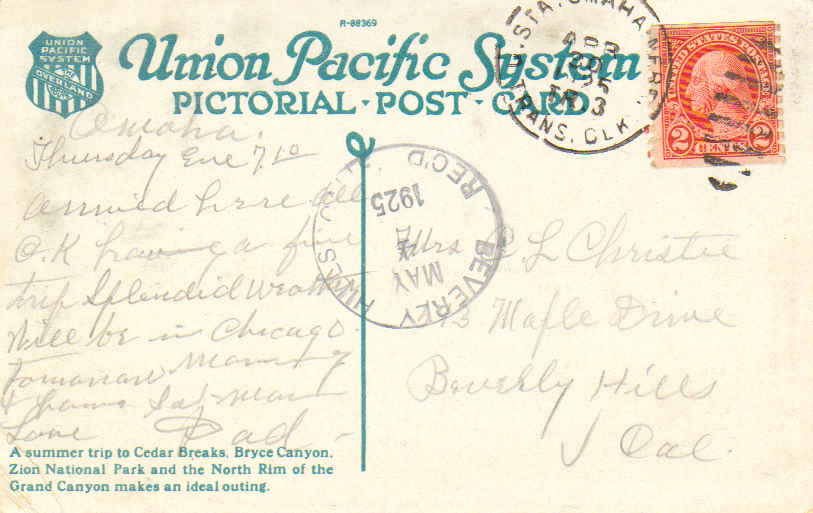 R-88369
UNION PACIFIC SYSTEM
OVERLAND
Union Pacific System
PICTORIAL · POST · CARD
STA. OMAHA NEBR.
APR 30
1925
TRANS. CLK.
UNITED STATES POSTAGE
2 CENTS 2
Omaha.
Thursday Eve 7.10
arrived here all
O.K having a fine
trip Splendid weather
Will be in Chicago
tomorrow Morning
& home Sat-
Love Dad -
BEVERLY HILLS
MAY 4
1925
REC'D
Mrs C L Christie
Maple Drive
Beverly Hills
Cal.
A summer trip to Cedar Breaks, Bryce Canyon,
Zion National Park and the North Rim of the
Grand Canyon makes an ideal outing.